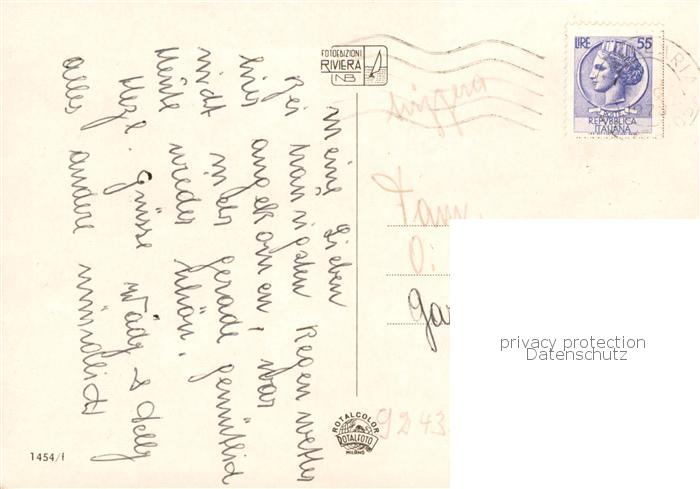 FOTOEDIZIONI
RIVIERA
NB
LIRE 55
POSTE
REPVBBLICA
ITALIANA
svizzera
Meine Lieben
Bei traurigsten Regenwetter
hier angekomen, war
nicht in der gerade gemütlich
Heute wieder schön.
Herz. Grüsse Wädy & Jelly
alles andere mündlich
Fam.
O.
Ga
9243
privacy protection
Datenschutz
ROTALCOLOR
ROTALFOTO
MILANO
1454/f